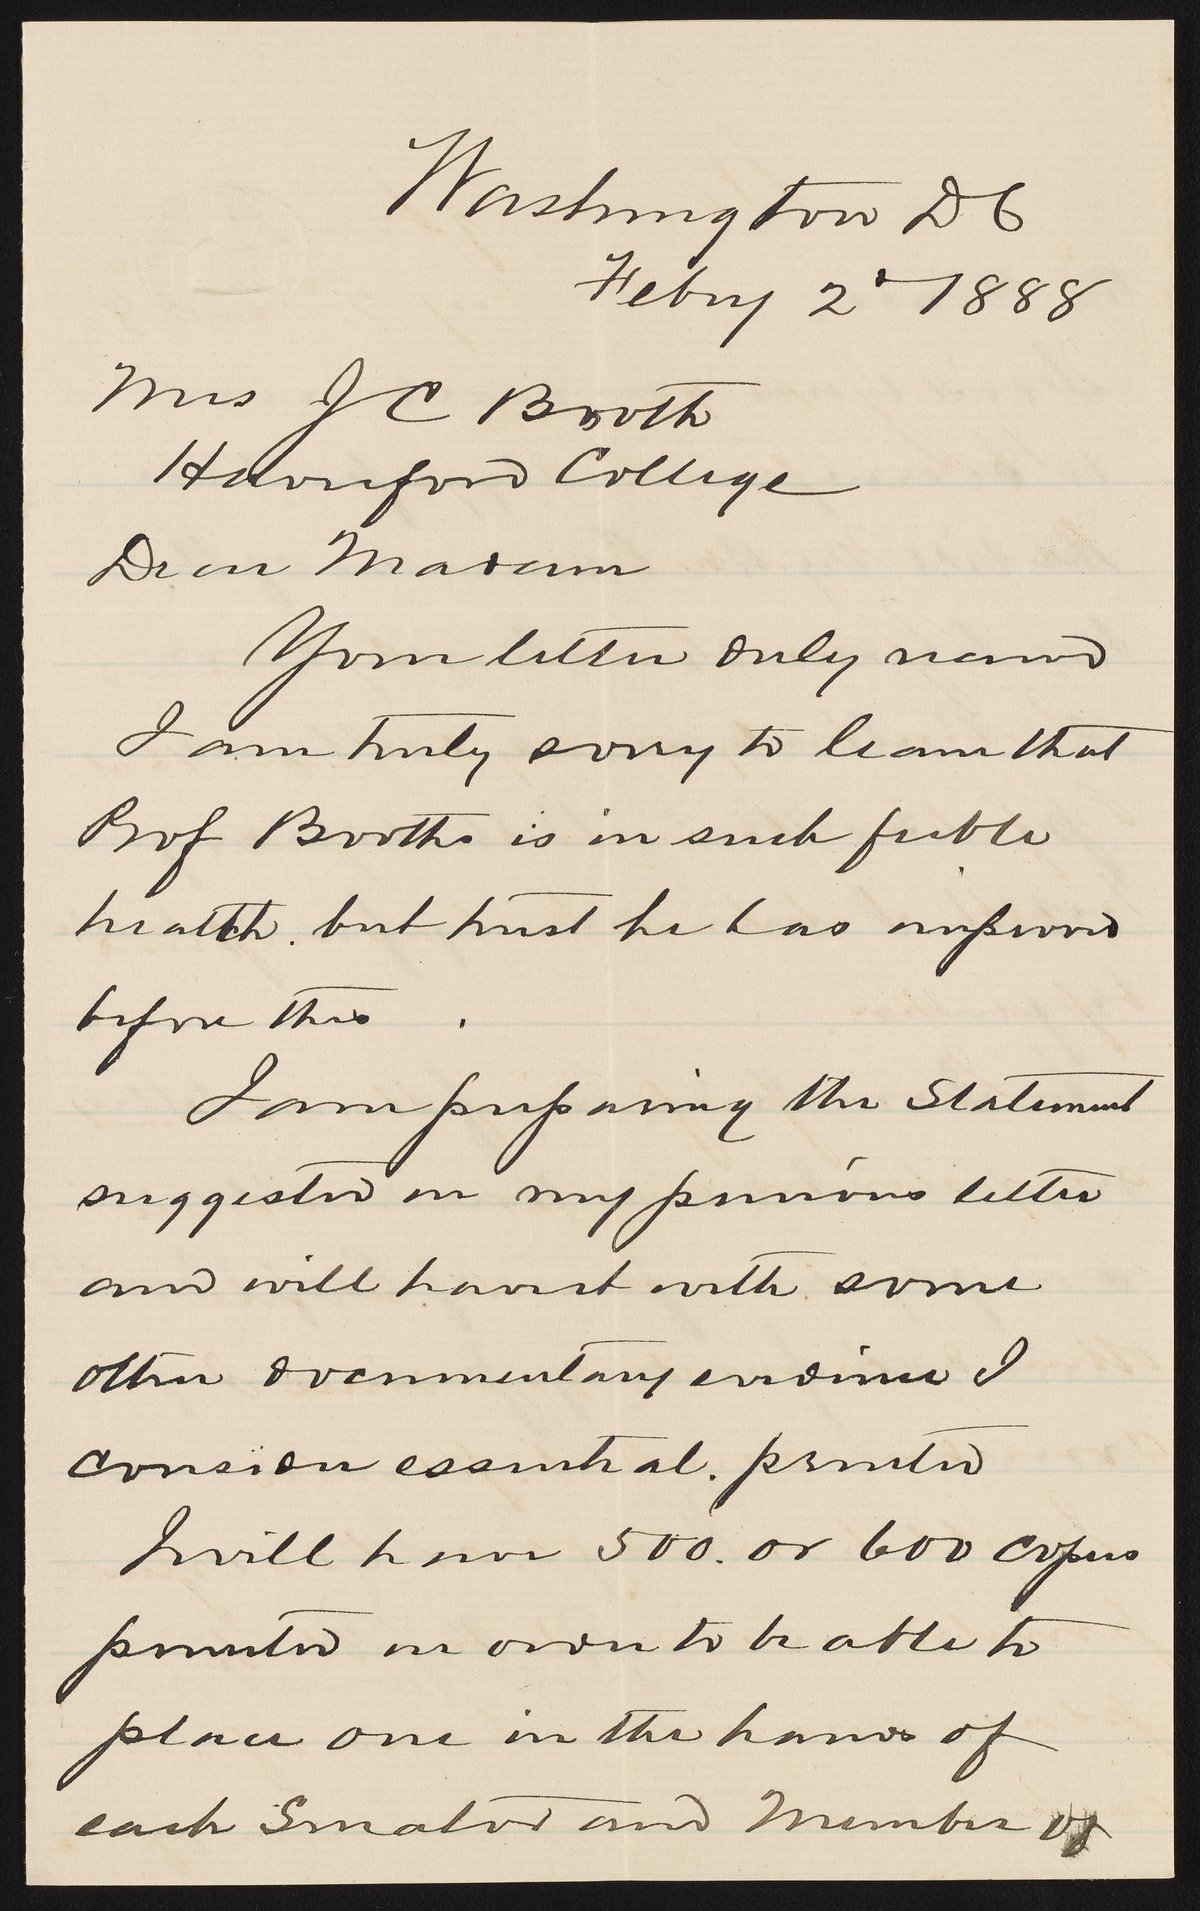 Washington DC
Febry 2d 1888
Mrs J C Booth
Haverford College
Dear Madam
Your letter duly recived
I am truly sorry to learn that
Prof Booth is in such feeble
health. but trust he has improved
before this.
I am preparing the Statement
suggested in my previous letter
and will have it with some
other documentary evidence I
consider essential. printed
I will have 500. or 600 copies
printed in order to be able to
place one in the hands of
each Senator and Member of